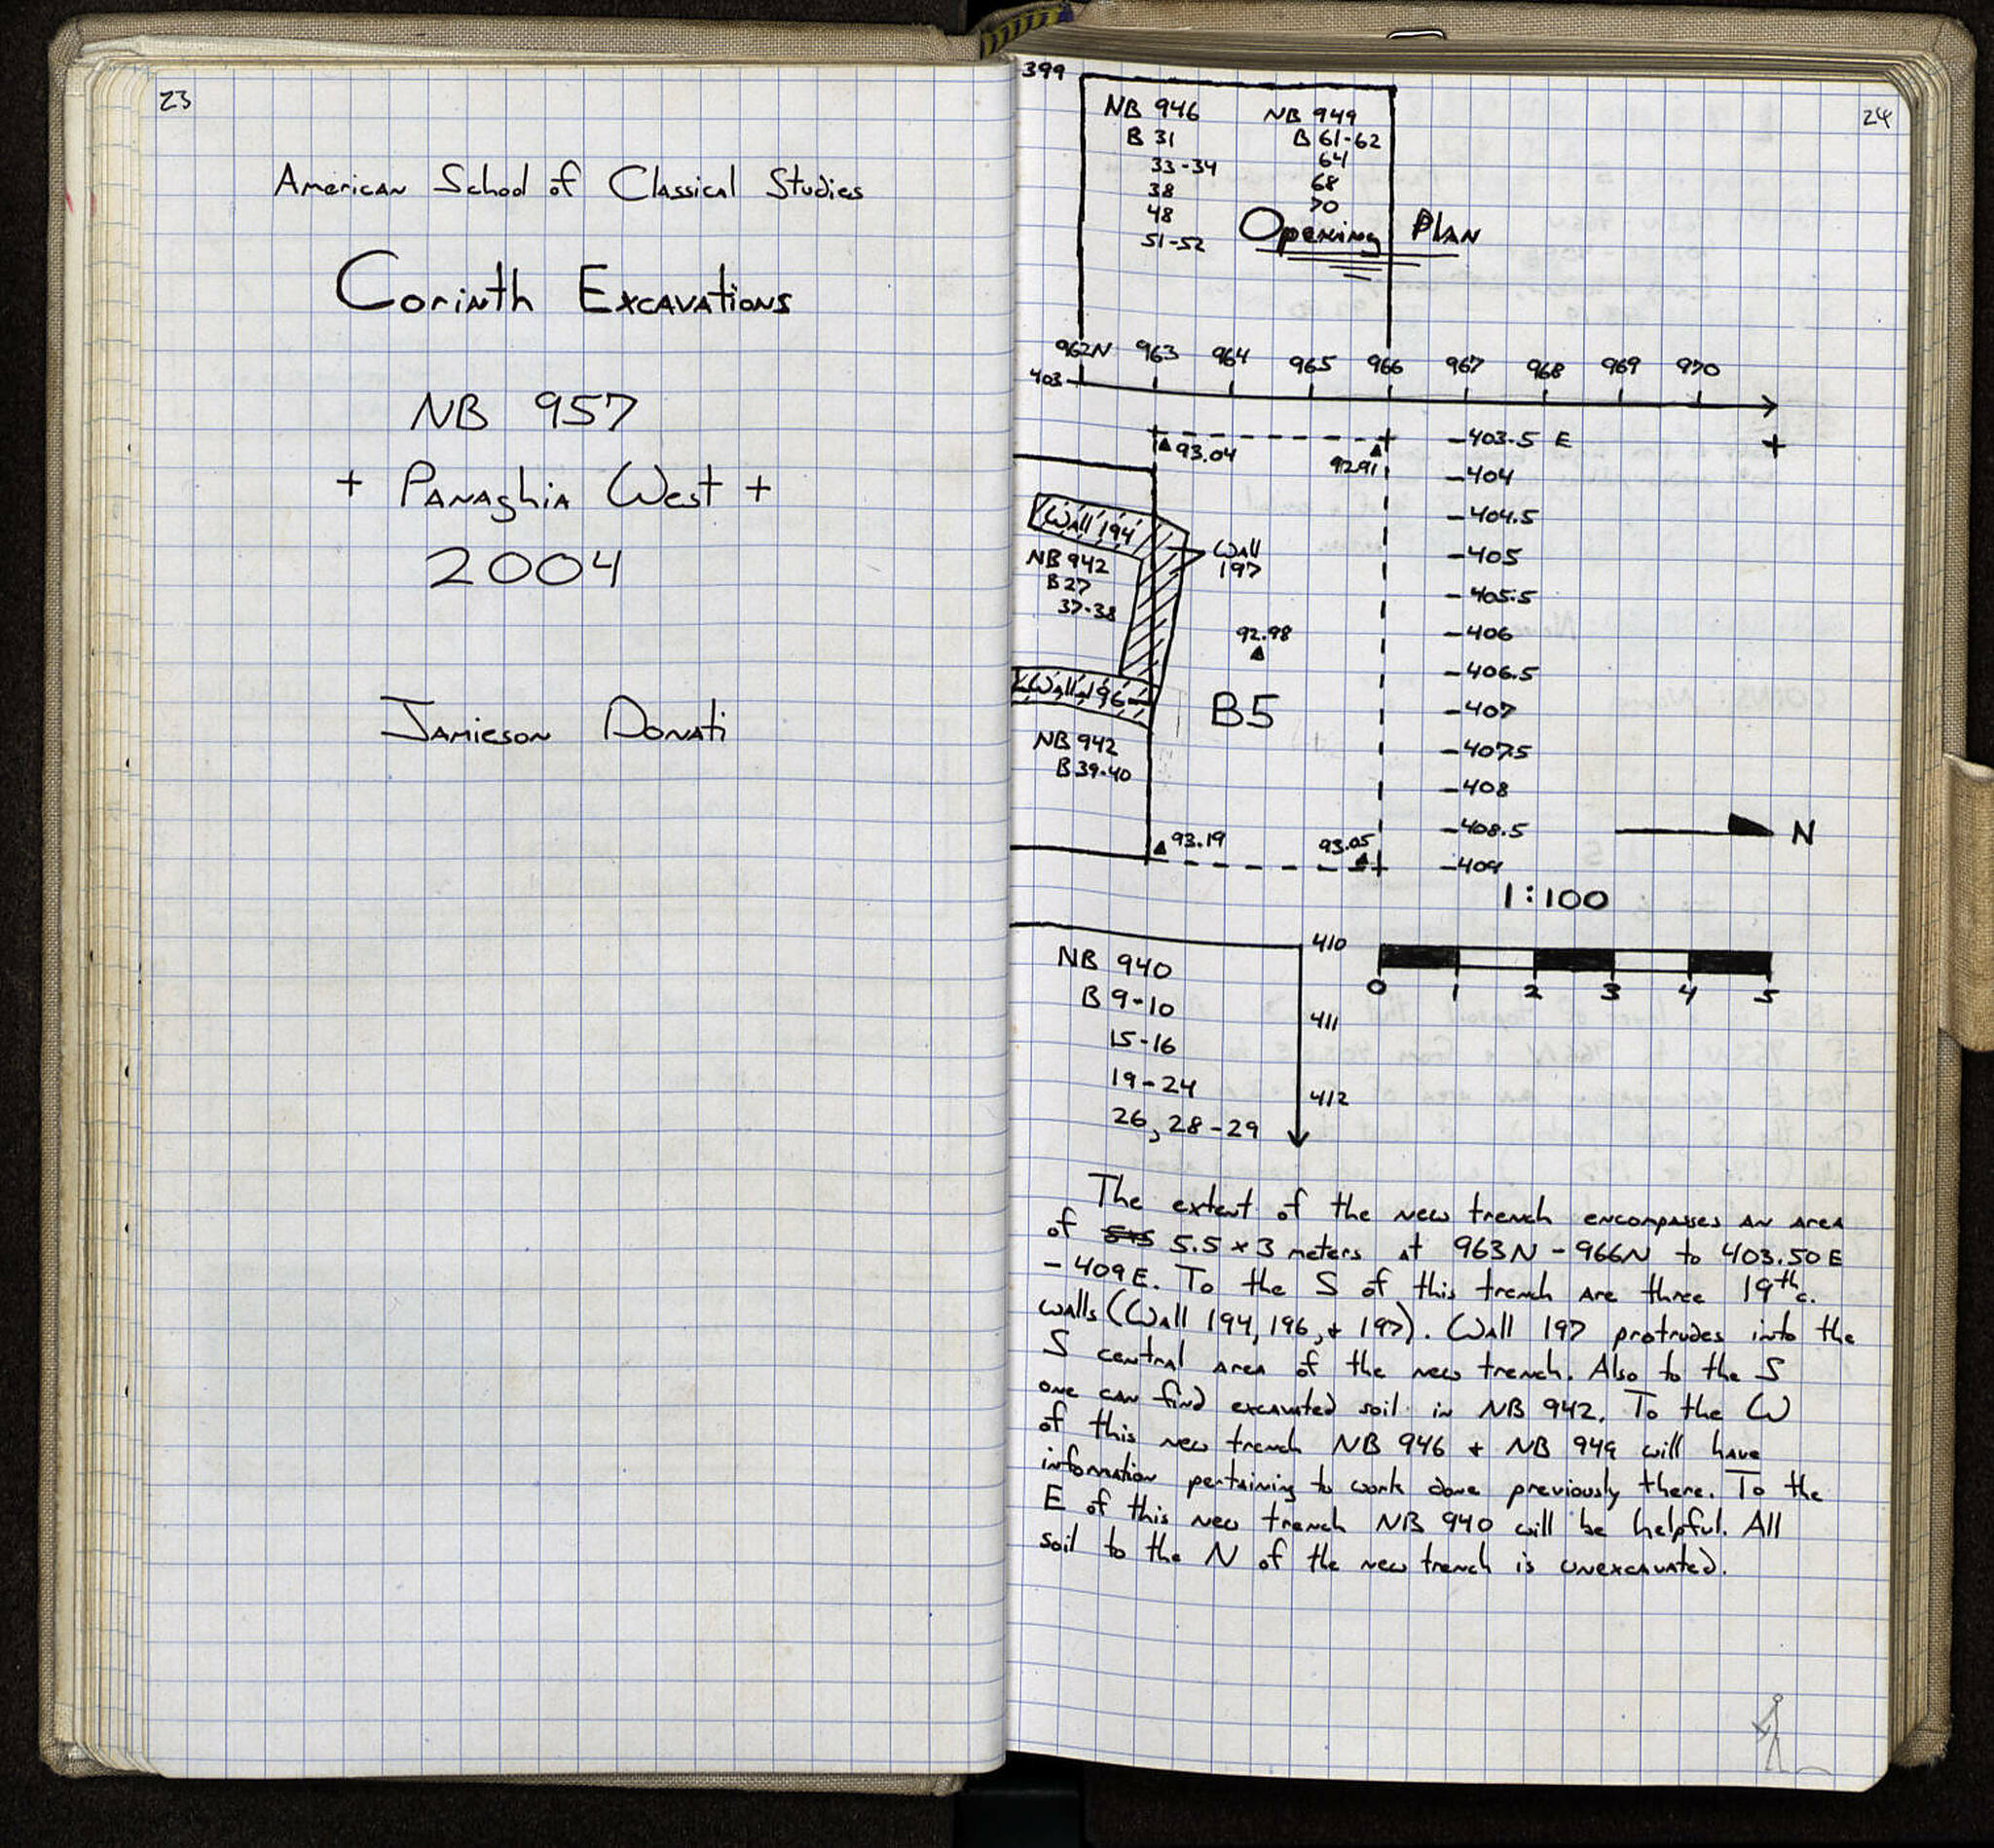 23
American School of Classical Studies
Corinth Excavations
NB 957
+ Panaghia West +
2004
Jamieson Donati
24
399
NB 946
B 31
33-34
38
48
51-52
NB 949
B 61-62
64
68
70
Opening Plan
962N 963 964 965 966 967 968 969 970
403
93.04
92.91
-403.5 E
-404
-404.5
-405
-405.5
-406
-406.5
-407
-407.5
-408
-408.5
-409
Wall 194
Wall
197
NB 942
B 27
37-38
92.98
Wall 196
B5
NB 942
B 39-40
93.19
93.05
N
1:100
410
411
412
0 1 2 3 4 5
NB 940
B 9-10
15-16
19-24
26, 28-29
The extent of the new trench encompasses an area
of 5.5 x 3 meters at 963N - 966N to 403.50 E
- 409 E. To the S of this trench are three 19th c.
walls (Wall 194, 196, + 197). Wall 197 protrudes into the
S central area of the new trench. Also to the S
one can find excavated soil in NB 942. To the W
of this new trench NB 946 + NB 949 will have
information pertaining to work done previously there. To the
E of this new trench NB 940 will be helpful. All
soil to the N of the new trench is unexcavated.